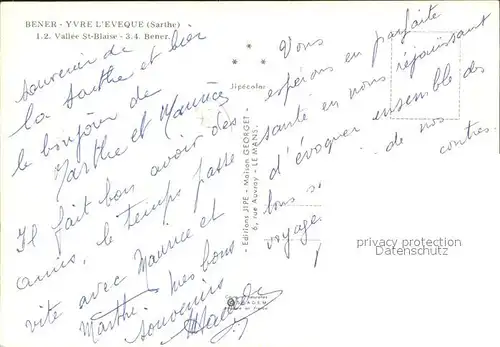 BENER - YVRE L'EVEQUE (Sarthe)
1.2. Vallée St-Blaise - 3.4. Bener.
Souvenir de
la Sarthe et bien
le bonjour de
Marthe et Maurice
Il fait bon avoir des
amis, le temps passe
vite avec Maurice et
Marthe mes bons
souvenirs
Jipécolor
- Editions JIPE - Maison GEORGET -
6, rue Auvray - LE MANS.
Vous
espérons en parfaite
santé en nous réjouissant
d'évoquer ensemble des
de nos
contres.
voyages
privacy protection
Datenschutz